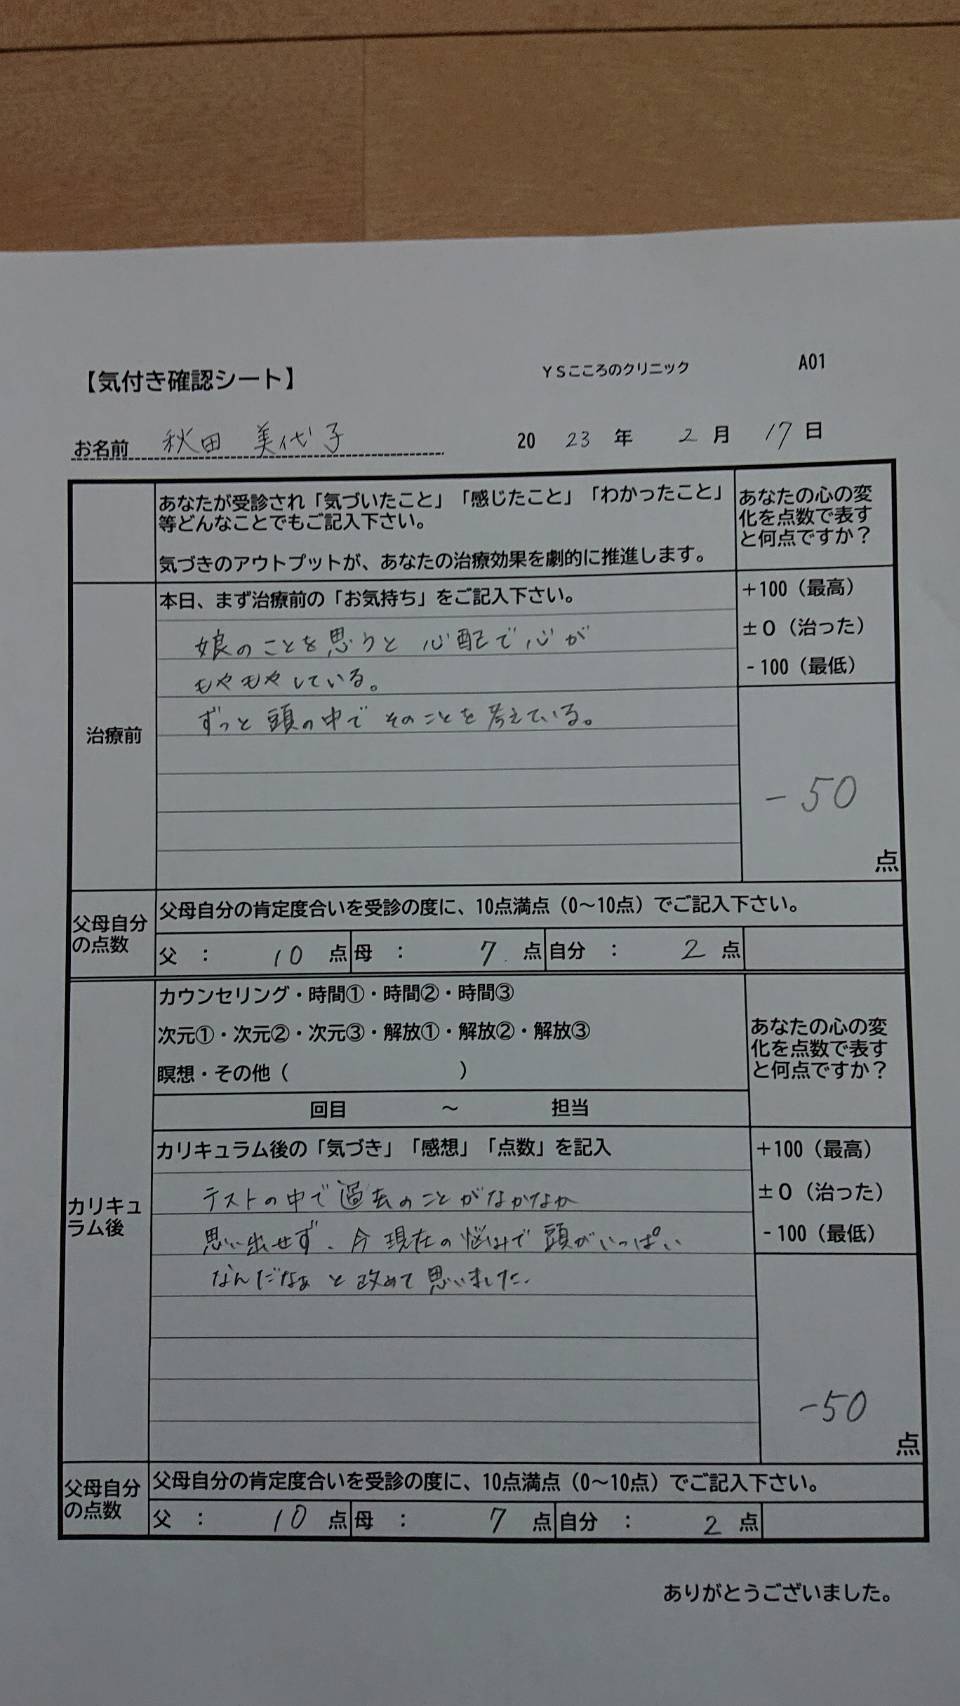 【気付き確認シート】 YSこころのクリニック A01
お名前 秋田 美代子 20 23 年 2 月 17 日
あなたが受診され「気づいたこと」「感じたこと」「わかったこと」
等どんなことでもご記入下さい。
気づきのアウトプットが、あなたの治療効果を劇的に推進します。
あなたの心の変
化を点数で表す
と何点ですか？
治療前
本日、まず治療前の「お気持ち」をご記入下さい。
娘のことを思うと 心配で心が
もやもやしている。
ずっと頭の中でそのことを考えている。
+100（最高）
±0（治った）
-100（最低）
-50
点
父母自分
の点数
父母自分の肯定度合いを受診の度に、10点満点（0～10点）でご記入下さい。
父 ： 10 点 母 ： 7 点 自分 ： 2 点
カリキュ
ラム後
カウンセリング・時間①・時間②・時間③
次元①・次元②・次元③・解放①・解放②・解放③
瞑想・その他（ ）
回目 ～ 担当
あなたの心の変
化を点数で表す
と何点ですか？
カリキュラム後の「気づき」「感想」「点数」を記入
テストの中で過去のことがなかなか
思い出せず、今現在の悩みで頭がいっぱい
なんだなぁと改めて思いました.
+100（最高）
±0（治った）
-100（最低）
-50
点
父母自分
の点数
父母自分の肯定度合いを受診の度に、10点満点（0～10点）でご記入下さい。
父 ： 10 点 母 ： 7 点 自分 ： 2 点
ありがとうございました。